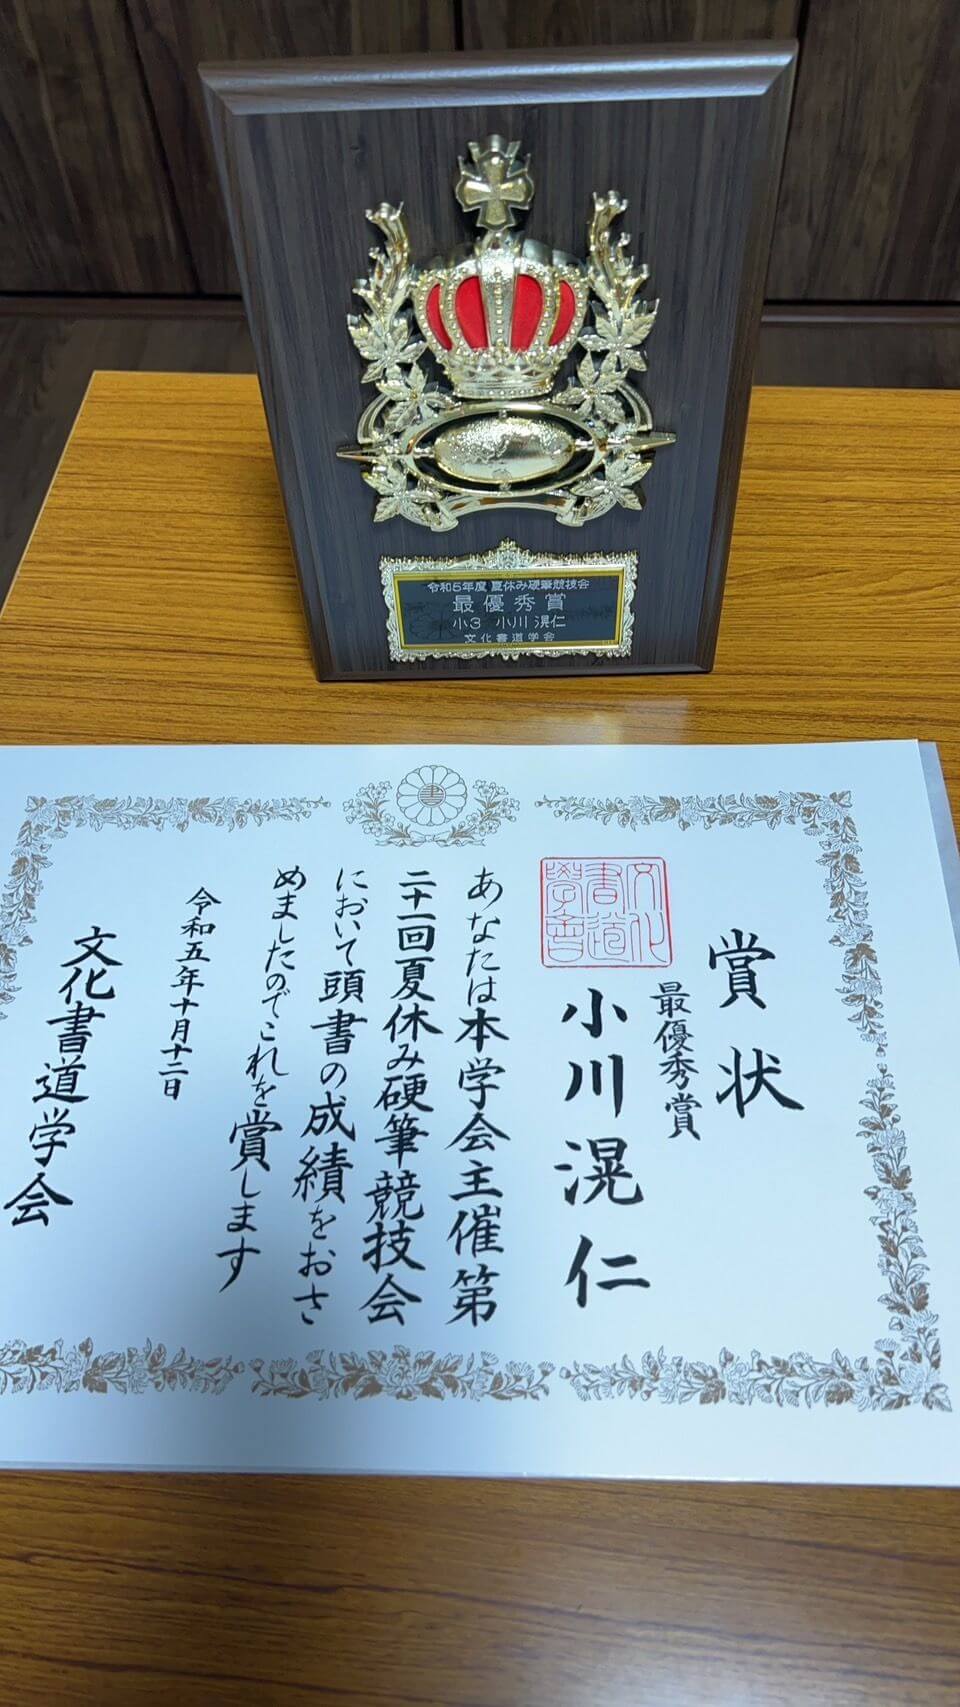 令和5年度 夏休み硬筆競技会
最優秀賞
小3 小川 滉仁
文化書道学会
書
賞状
最優秀賞
小川滉仁
文化
書道
學會
あなたは本学会主催第
二十一回夏休み硬筆競技会
において頭書の成績をおさ
めましたのでこれを賞します
令和五年十月十二日
文化書道学会